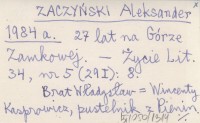 ZACZYŃSKI Aleksander
1984 a. 27 lat na Górze
Zamkowej. — Życie Lit.
34, nr 5 (29I): 8.
Brat Władysław = Wincenty
Kasprowicz, pustelnik z Pienin.